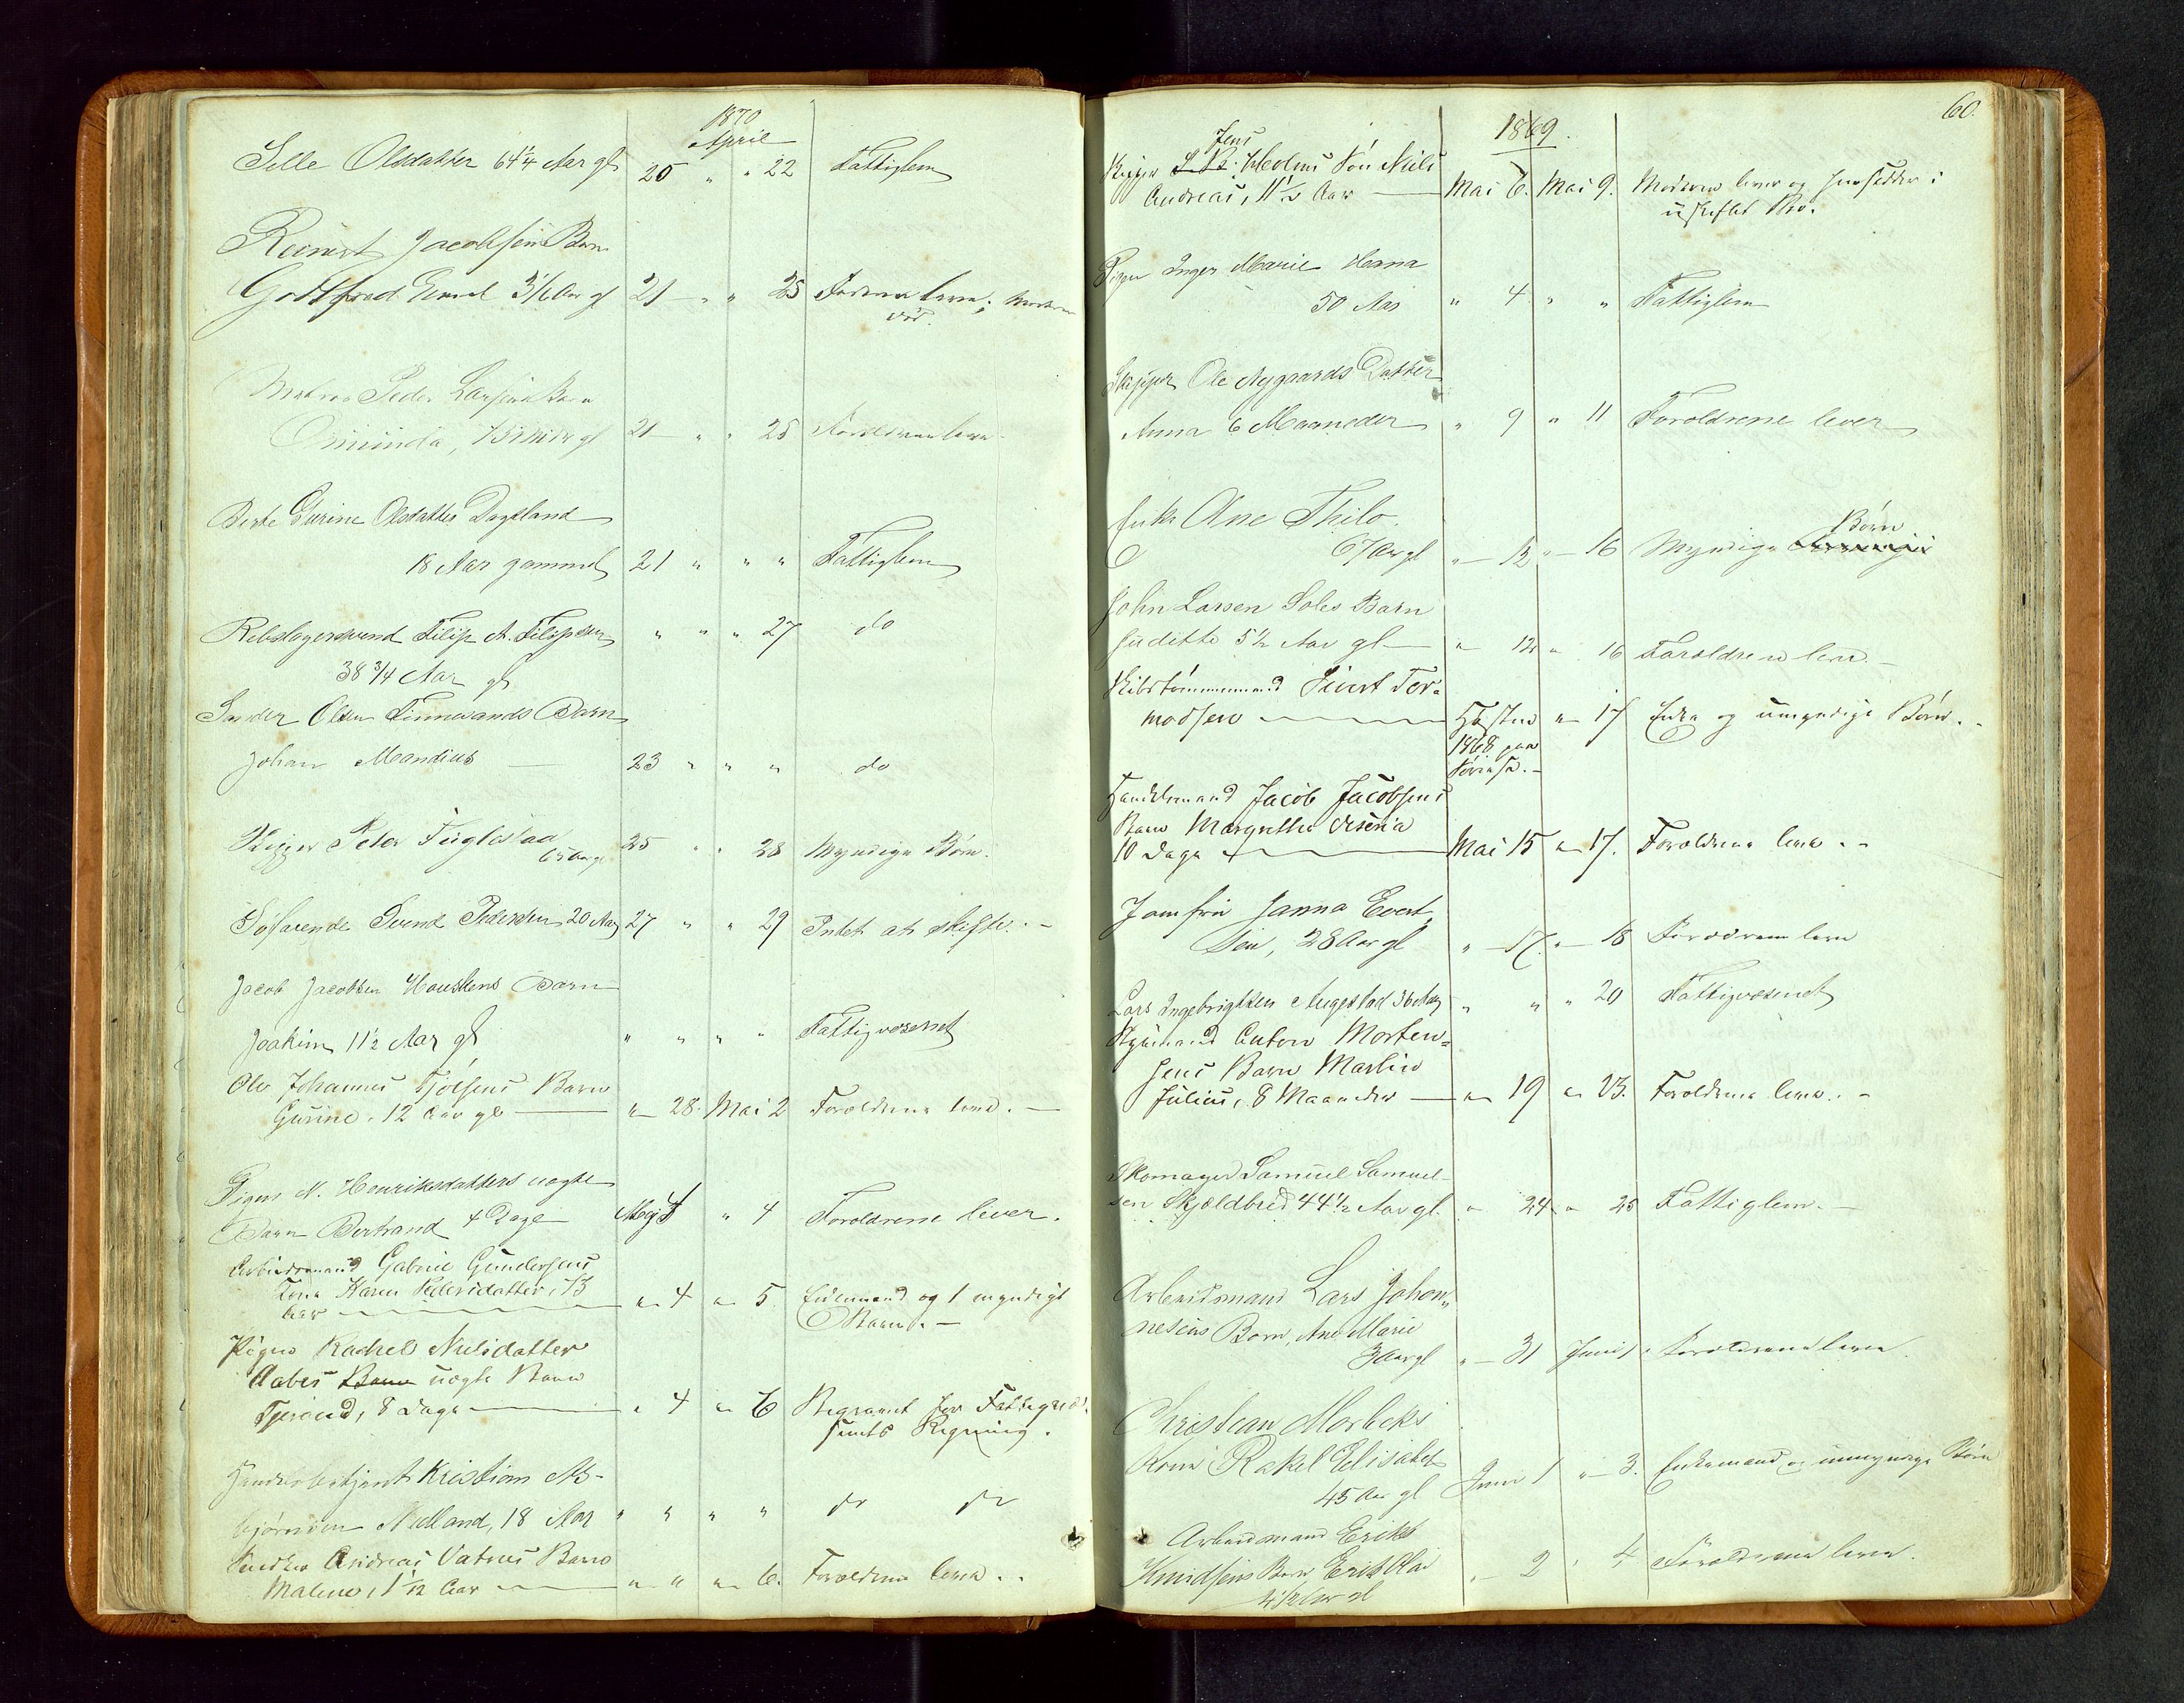 1870
April
Sille Olsdatter 64 1/4 Aar gl 20 " " 22 Fattiglem
Reinert Jacobsens Barn
Gottfred Emil 3 1/6 Aar gl 21 " " 25 Faderen lever, Moderen
død.
Peder Larsens Barn
21 " " 25 Forældrene lever
Berte Gurine Olsdatter Dagsland
18 Aar gammel 21 " " " Fattiglem
Rebslagersvend Filip A. Filipsen " " " 27 do
38 3/4 Aar gl
Sander Olsen Finnesands Barn
Johan Mandius — 23 " " " do
Skipper Peter Fuglestad
65 Aar gl 25 " " 28 Myndige Børn.
Søfarende Svend Pedersen 20 Aar 27 " " 29 Intet at skifte. -
Jacob Jacobsen Houskens Barn
Joakim 11 1/2 Aar gl " " " " Fattigvæsenet
Ole Johannes Tjølsens Barn
Gurine, 12 Aar gl — " 28. Mai 2 Forældrene leve. —
Pigen N. Henriksdatters uægte
Barn Bertrand 4 Dage Maj 1 " 4 Forældrene lever.
Arbeidsmand Gabriel Gundersens
Kone Karen Pedersdatter, 73
Aar — " 4 " 5. Enkemand og 1 myndigt
Barn. —
Pigen Rachel Nielsdatter
Aabes Barn uægte Barn
Tjerand, 8 Dage — " 4 " 6 Begravet for Fattigvæ-
senets Regning.
Handelsbetjent Kristian As-
bjørnsen Nedland, 18 Aar " " " " do do
Snedker Andreas Vatnes Barn
Malene, 1 1/12 Aar — " " " 6. Forældrene leve. .
60.
1869.
Jens
Skipper Holms Søn Niels
Andreas, 11 1/2 Aar — Mai 6. Mai 9. Moderen lever og hensidder i
uskiftet Bo.
Pigen Inger Marie Hanna
50 Aar " 4 " " Fattiglem
Skipper Ole Nygaards Datter
Anna 6 Maaneder " 9 " 11 Forældrene lever
Enke Ane Thilo.
67 Aar gl " 12 " 16 Myndige Børn
John Larsen Soles Barn
Juditte 5 1/2 Aar gl — " 12 " 16 Forældrene leve. —
Skibstømmermand Sivert Tor-
modsen — Høsten " 17 Enke og umyndige Børn. -
1868 paa
Handelsmand Jacob Jacobsens
Barn Margrethe
10 Dage — Mai 15 " 17. Forældrene leve. -
Jomfru Janna Evert
sen, 28 Aar gl " 17. " 18 Forældrene leve
Lars Ingebrigtsen Augestad 36 Aar " " " 20 Fattigvæsenet
Styrmand Anton Morten-
sens Barn Martin
Julius, 8 Maaneder — " 19 " 23. Forældrene leve. -
Skomager Samuel Samuel-
sen Skjældbred 44 1/2 Aar gl. " 24 " 25 Fattiglem. —
Arbeidsmand Lars Johan-
nesens Barn, Ane Marie
3 Aar gl " 31 Juni 1 Forældrene leve.
Christian Morbeks
Kone Rakel Elisabet
45 Aar gl Juni 1 " 3. Enkemand og umyndige Børn
Arbeidsmand Eriks
Knudsens Barn Erik Olai " 2 " 4 Forældrene leve.
4 1/2 Aar gl